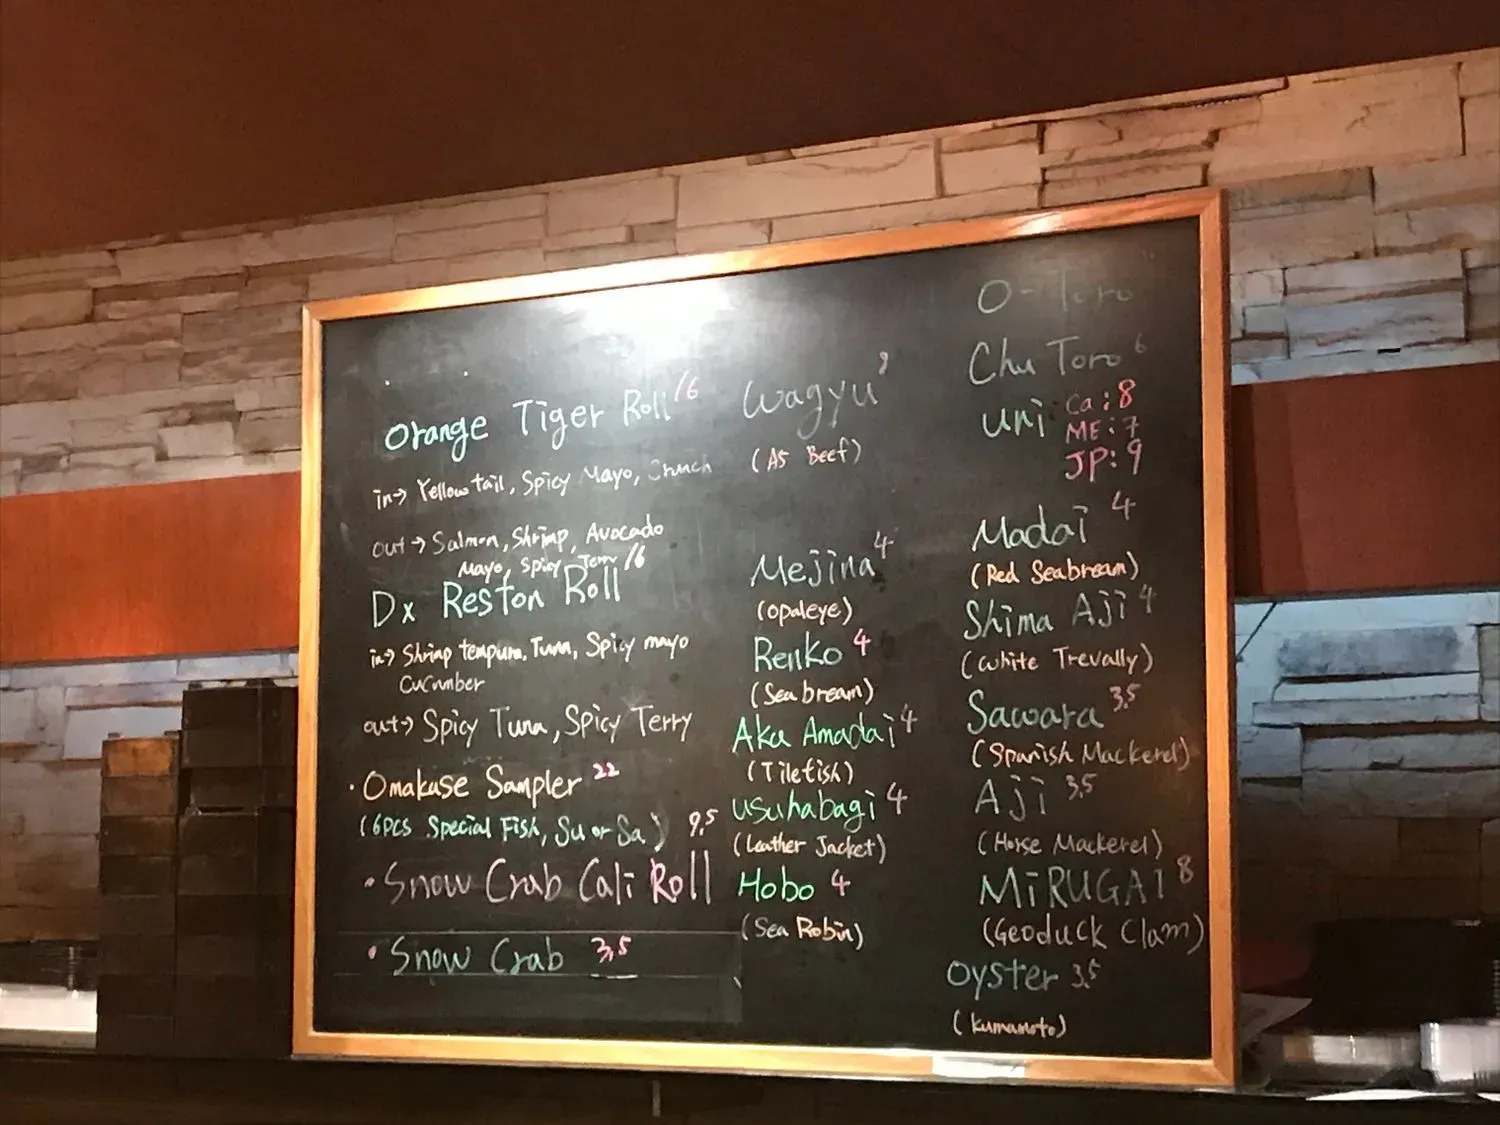 Orange Tiger Roll 16
in→ Yellow tail, Spicy Mayo, Crunch
out→ Salmon, Shrimp, Avocado
Mayo, Spicy Terry
Dx Reston Roll 16
in→ Shrimp tempura, Tuna, Spicy mayo
Cucumber
out→ Spicy Tuna, Spicy Terry
• Omakase Sampler 22
(6PCS Special Fish, Su or Sa)
• Snow Crab Cali Roll 9.5
• Snow Crab 3.5
Wagyu 9
(A5 Beef)
Mejina 4
(opaleye)
Renko 4
(Sea bream)
Aka Amadai 4
(Tilefish)
Usuhabagi 4
(Leather Jacket)
Hobo 4
(Sea Robin)
O-Toro
Chu Toro 6
uni Ca: 8
ME: 7
JP: 9
Madai 4
(Red Seabream)
Shima Aji 4
(White Trevally)
Sawara 3.5
(Spanish Mackerel)
Aji 3.5
(Horse Mackerel)
MiRUGAI 8
(Geoduck Clam)
Oyster 3.5
(Kumamoto)